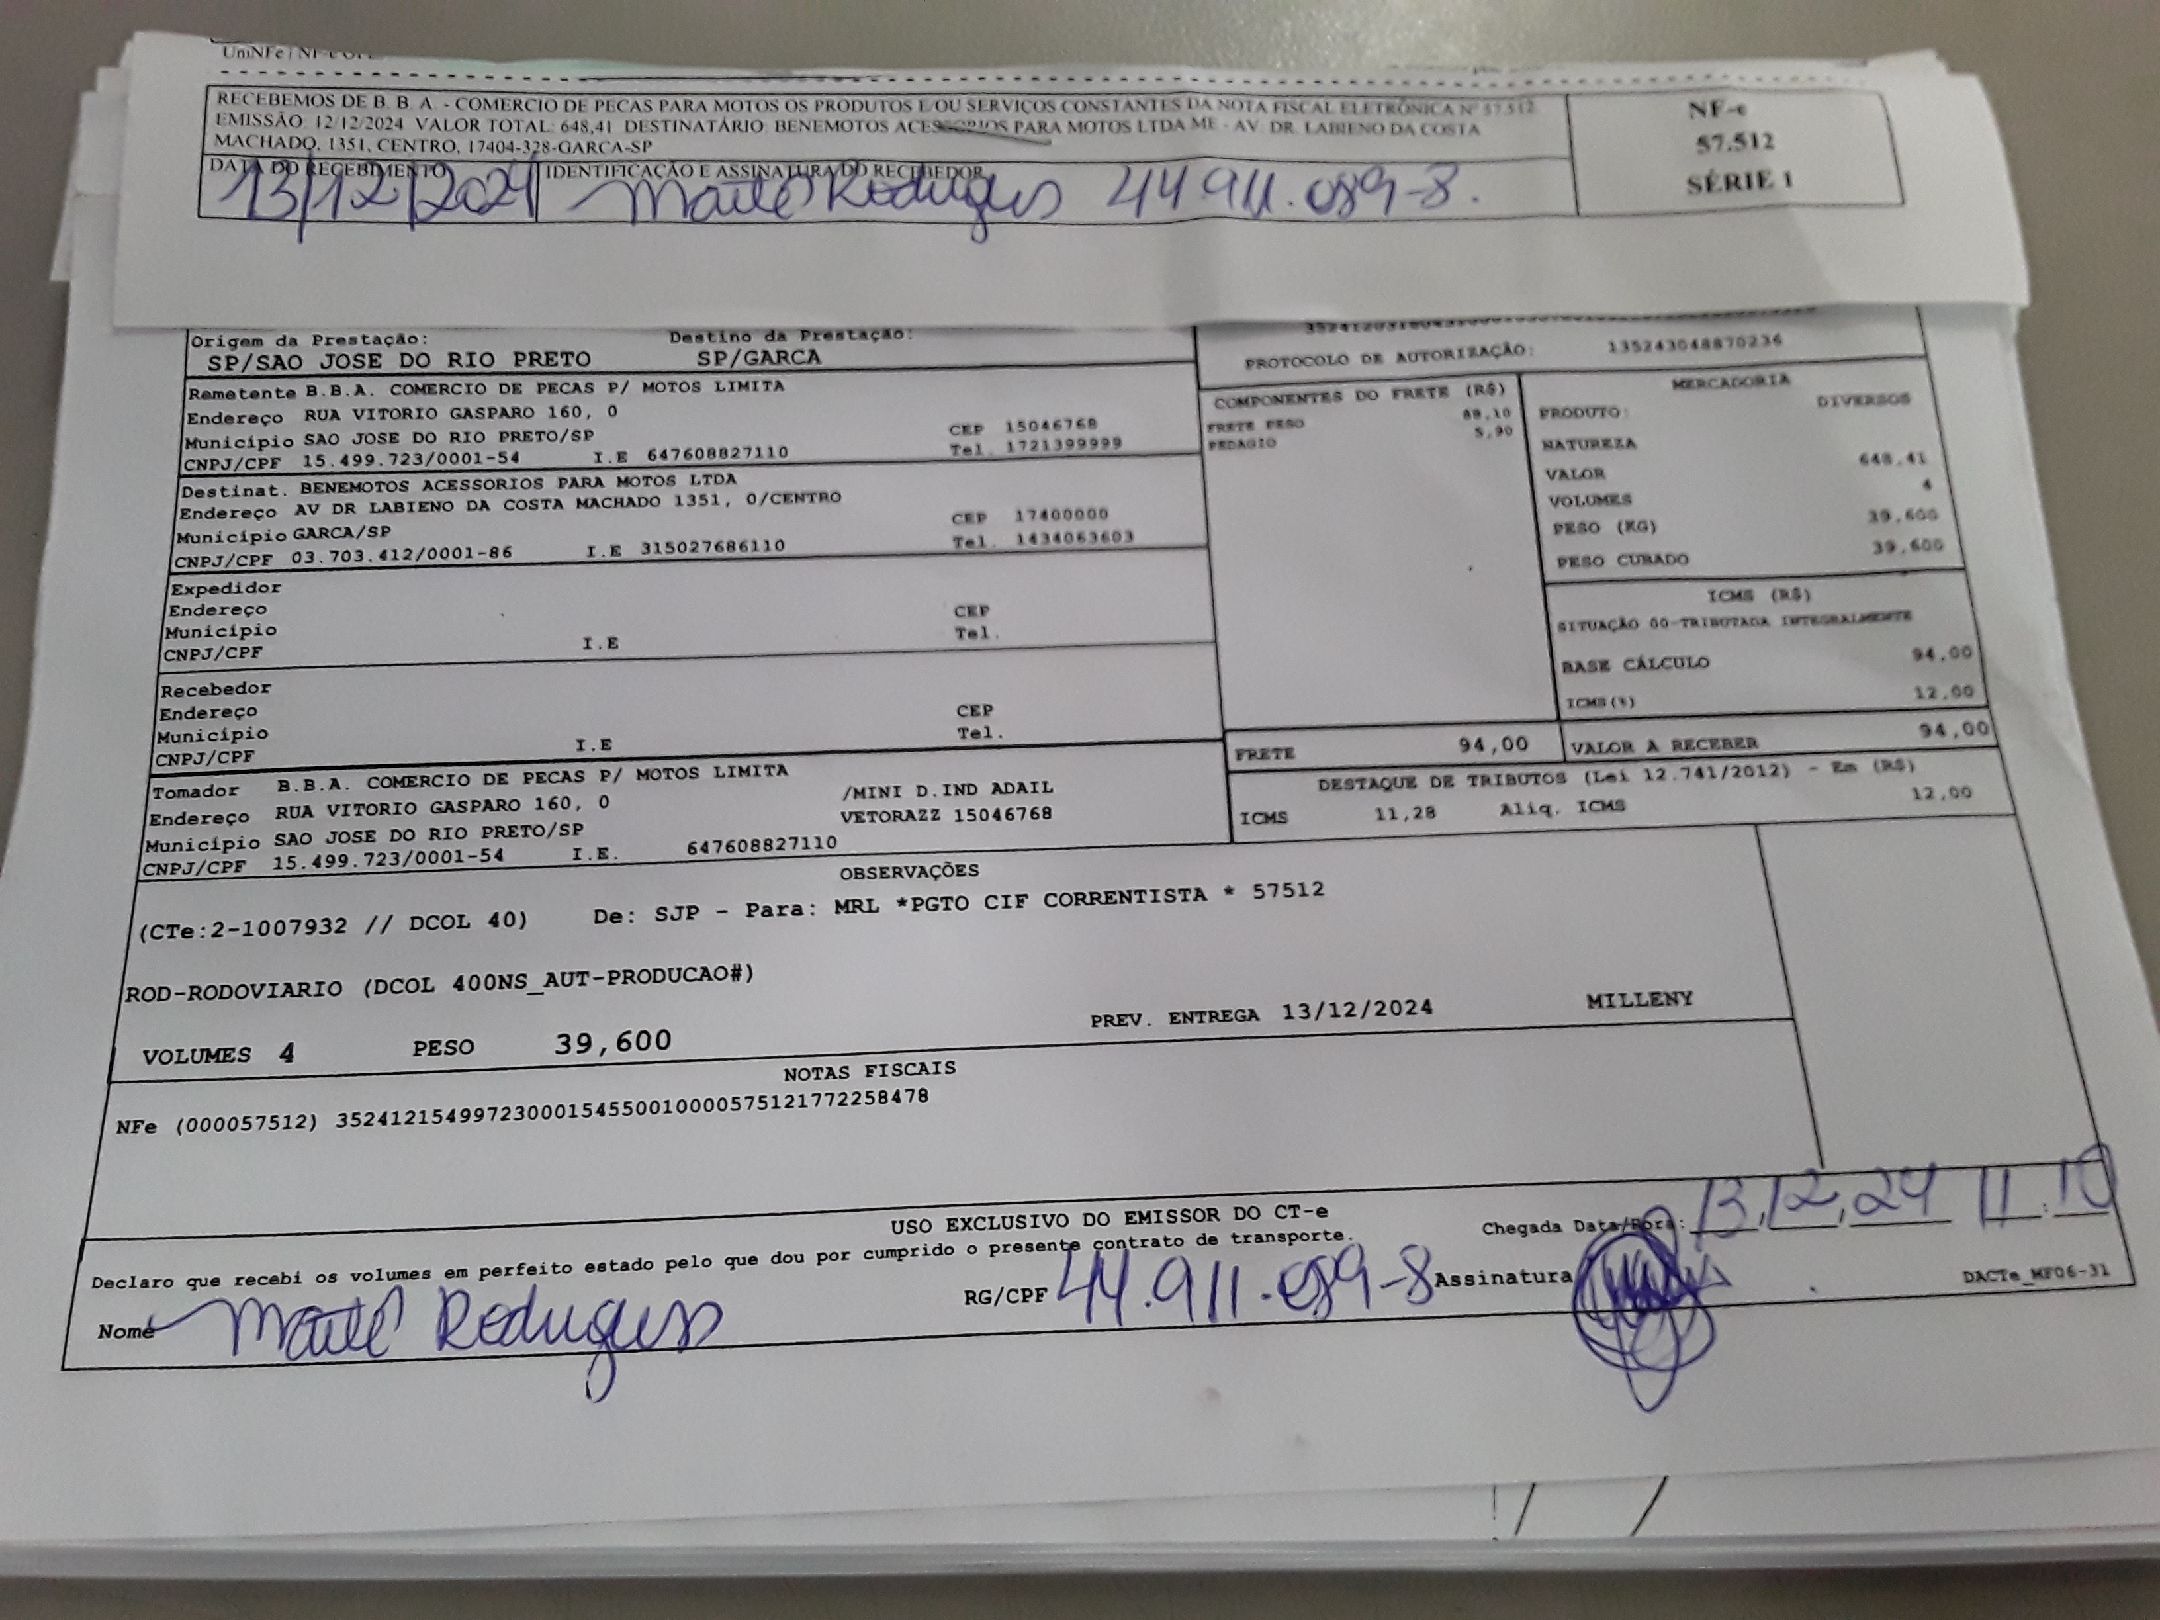 UniNFe / NF-e
RECEBEMOS DE B. B. A. - COMERCIO DE PECAS PARA MOTOS OS PRODUTOS E/OU SERVIÇOS CONSTANTES DA NOTA FISCAL ELETRÔNICA Nº 57.512
EMISSÃO: 12/12/2024 VALOR TOTAL: 648,41 DESTINATÁRIO: BENEMOTOS ACESSORIOS PARA MOTOS LTDA ME - AV. DR. LABIENO DA COSTA
MACHADO, 1351, CENTRO, 17404-328-GARCA-SP
NF-e
57.512
SÉRIE 1
DATA DO RECEBIMENTO
IDENTIFICAÇÃO E ASSINATURA DO RECEBEDOR
13/12/2024 Maitê Rodrigues 44.911.089-8.
Origem da Prestação: Destino da Prestação:
SP/SAO JOSE DO RIO PRETO SP/GARCA
PROTOCOLO DE AUTORIZAÇÃO: 135243048870236
Remetente B.B.A. COMERCIO DE PECAS P/ MOTOS LIMITA
Endereço RUA VITORIO GASPARO 160, 0
Município SAO JOSE DO RIO PRETO/SP CEP 15046768
CNPJ/CPF 15.499.723/0001-54 I.E 647608827110 Tel. 1721399999
Destinat. BENEMOTOS ACESSORIOS PARA MOTOS LTDA
Endereço AV DR LABIENO DA COSTA MACHADO 1351, 0/CENTRO
Município GARCA/SP CEP 17400000
CNPJ/CPF 03.703.412/0001-86 I.E 315027686110 Tel. 1434063603
Expedidor
Endereço
Município CEP
CNPJ/CPF I.E Tel.
Recebedor
Endereço
Município CEP
CNPJ/CPF I.E Tel.
Tomador B.B.A. COMERCIO DE PECAS P/ MOTOS LIMITA
Endereço RUA VITORIO GASPARO 160, 0 /MINI D.IND ADAIL
Município SAO JOSE DO RIO PRETO/SP VETORAZZ 15046768
CNPJ/CPF 15.499.723/0001-54 I.E. 647608827110
COMPONENTES DO FRETE (R$)
FRETE PESO 88,10
PEDAGIO 5,90
MERCADORIA
PRODUTO: DIVERSOS
NATUREZA
VALOR 648,41
VOLUMES 4
PESO (KG) 39,600
PESO CUBADO 39,600
ICMS (R$)
SITUAÇÃO 00-TRIBUTADA INTEGRALMENTE
BASE CÁLCULO 94,00
ICMS(%) 12,00
FRETE 94,00 VALOR A RECEBER 94,00
DESTAQUE DE TRIBUTOS (Lei 12.741/2012) - Em (R$)
ICMS 11,28 Aliq. ICMS 12,00
OBSERVAÇÕES
(CTe:2-1007932 // DCOL 40) De: SJP - Para: MRL *PGTO CIF CORRENTISTA * 57512
ROD-RODOVIARIO (DCOL 400NS_AUT-PRODUCAO#)
VOLUMES 4 PESO 39,600 PREV. ENTREGA 13/12/2024 MILLENY
NOTAS FISCAIS
NFe (000057512) 35241215499723000154550010000575121772258478
USO EXCLUSIVO DO EMISSOR DO CT-e
Declaro que recebi os volumes em perfeito estado pelo que dou por cumprido o presente contrato de transporte.
Chegada Data/Hora: 13,12,24 11:10
Nome Maitê Rodrigues RG/CPF 44.911.089-8 Assinatura
DACTe_MF06-31